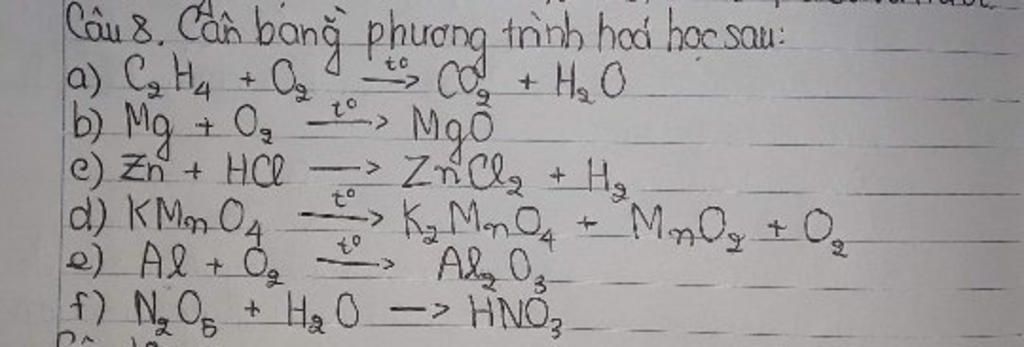 Câu 8. Cân bằng phương trình hoá học sau:
a) C₂H₄ + O₂ —t⁰→ CO₂ + H₂O
b) Mg + O₂ —t⁰→ MgO
c) Zn + HCl → ZnCl₂ + H₂
d) KMnO₄ —t⁰→ K₂MnO₄ + MnO₂ + O₂
e) Al + O₂ —t⁰→ Al₂O₃
f) N₂O₅ + H₂O → HNO₃